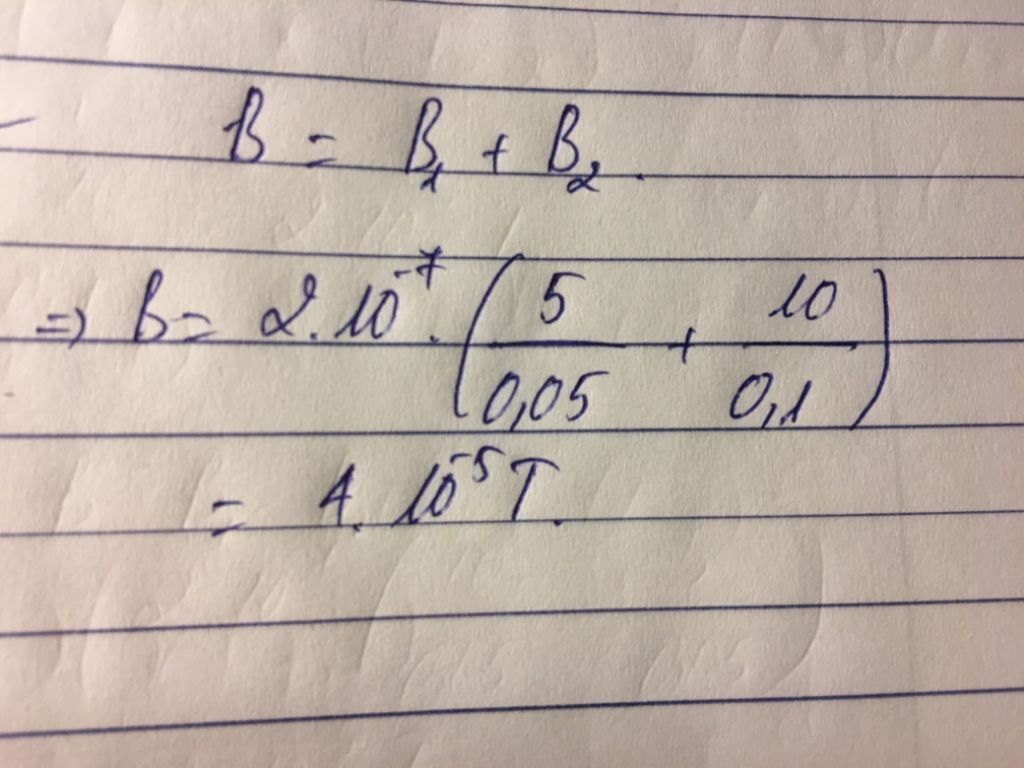 B = B₁ + B₂.
=> B = 2.10⁻⁷.(5/0,05 + 10/0,1)
= 4.10⁻⁵T.